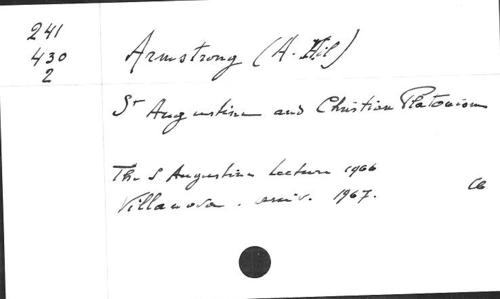 241
430
2
Armstrong (A. Hil)
St Augustine and Christian Platonism
The S Augustine Lecture 1966
Villanova . univ. 1967.